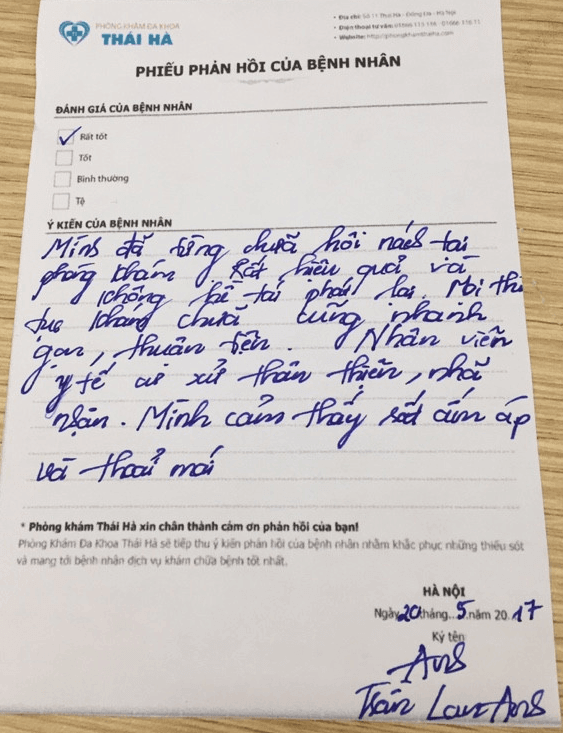 PHÒNG KHÁM ĐA KHOA
THÁI HÀ
• Địa chỉ: Số 11 Thái Hà - Đống Đa - Hà Nội
• Điện thoại tư vấn:
• Website: http://phongkhamthaiha.com
PHIẾU PHẢN HỒI CỦA BỆNH NHÂN
ĐÁNH GIÁ CỦA BỆNH NHÂN
Rất tốt
Tốt
Bình thường
Tệ
Ý KIẾN CỦA BỆNH NHÂN
Mình đã từng chữa hôi nách tại
phòng khám rất hiệu quả và
không bị tái phát lại. Mọi thủ
tục khám chữa cũng nhanh
gọn, thuận tiện. Nhân viên
y tế cư xử thân thiện, nhã
nhặn. Mình cảm thấy rất ấm áp
và thoải mái
* Phòng khám Thái Hà xin chân thành cám ơn phản hồi của bạn!
Phòng Khám Đa Khoa Thái Hà sẽ tiếp thu ý kiến phản hồi của bệnh nhân nhằm khắc phục những thiếu sót
và mang tới bệnh nhân dịch vụ khám chữa bệnh tốt nhất.
HÀ NỘI
Ngày 20 tháng..5.năm 20.17
Ký tên
Anh
Trần Lan Anh